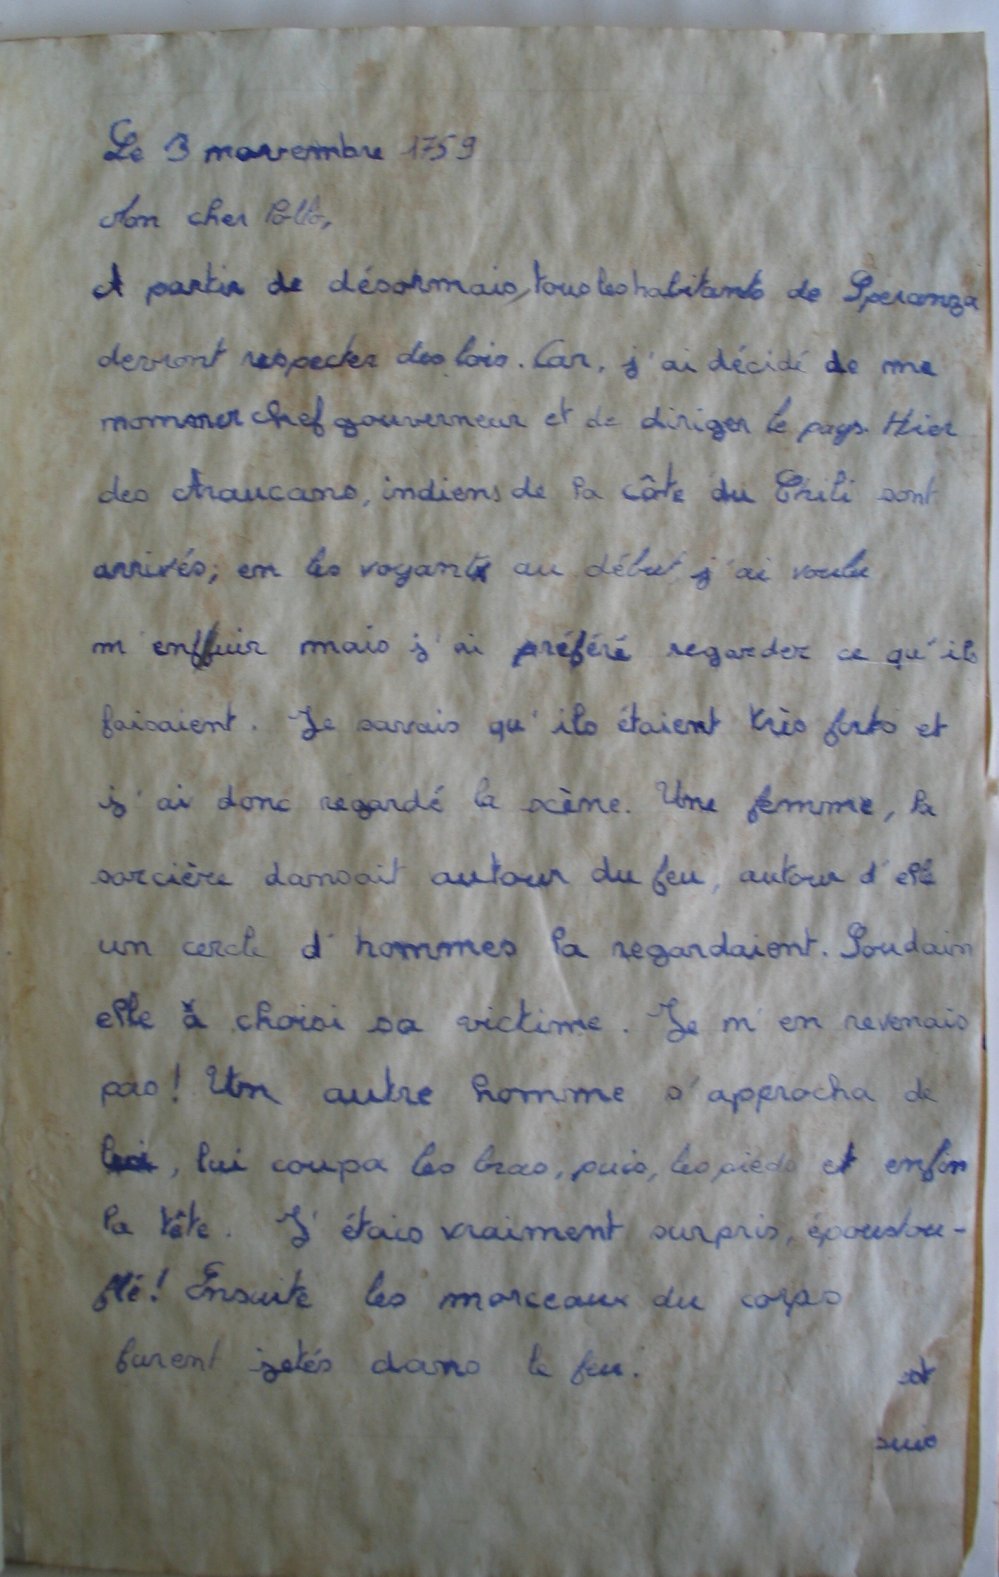 Le 3 novembre 1759
Mon cher
A partir de désormais, tous les habitants de Speranza
devront respecter des lois. Car, j'ai décidé de me
nommer chef gouverneur et de diriger le pays. Hier
des Araucans, indiens de la côte du Chili sont
arrivés; en les voyant au début j'ai voulu
m'enffuir mais j'ai préféré regarder ce qu'ils
faisaient. Je savais qu'ils étaient très forts et
j'ai donc regardé la scène. Une femme, la
sorcière dansait autour du feu, autour d'elle
un cercle d'hommes la regardaient. Soudain
elle a choisi sa victime. Je m'en revenais
pas! Un autre homme s'approcha de
lui, lui coupa les bras, puis, les pieds et enfin
la tête. J'étais vraiment surpris, époustou-
flé! Ensuite les morceaux du corps
furent jetés dans le feu.
suis